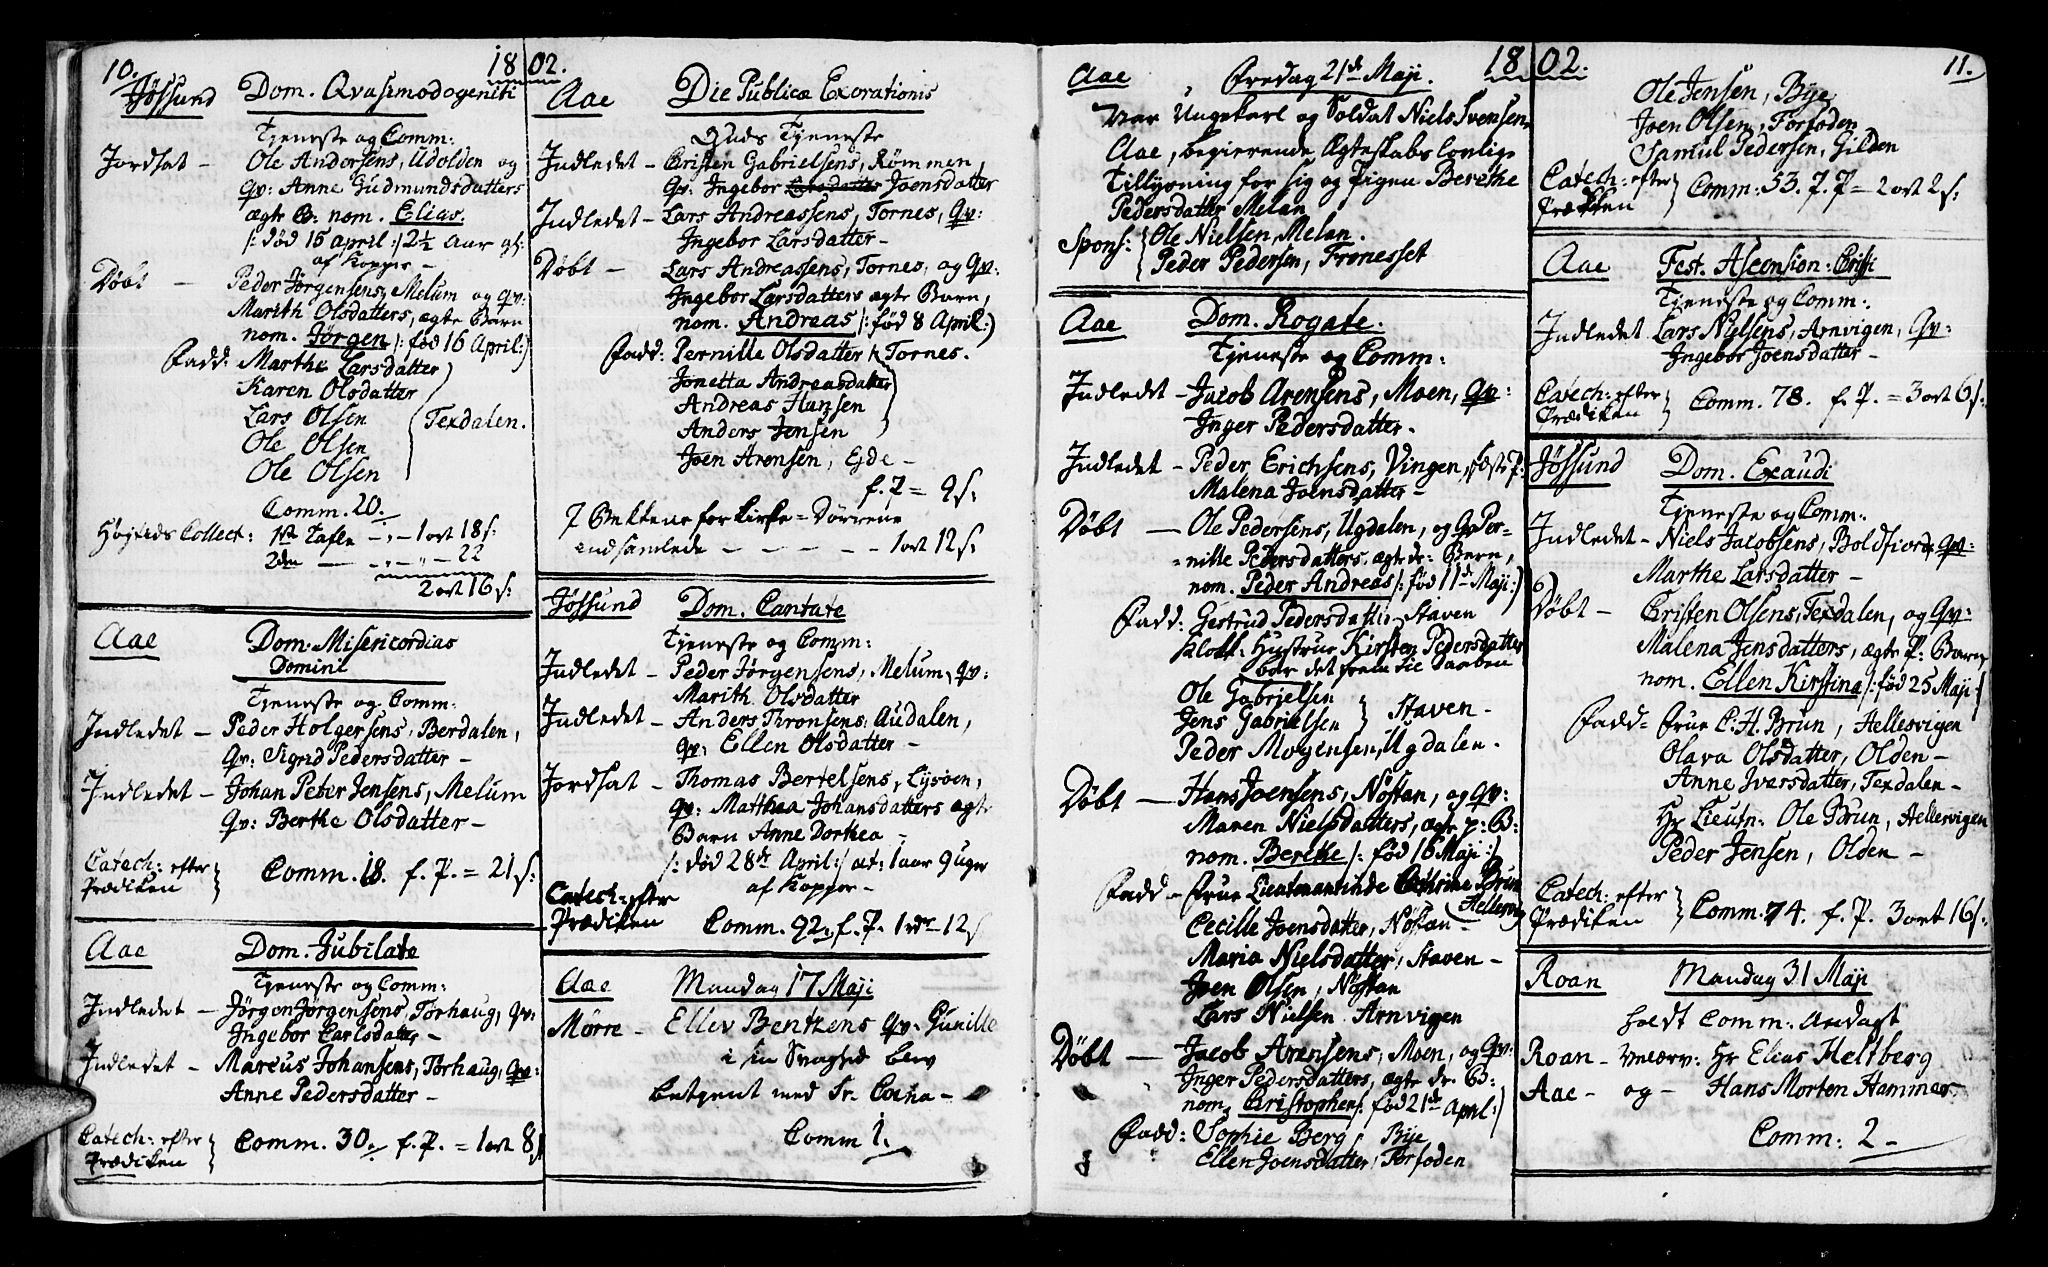 10.
1802.
Jøssund Dom. Qvasimodogeniti
Tjeneste og Comm:
Jordsat - Ole Andorsens, Udolden og
Qv: Anne Gudmundsdatters
ægte B: nom. Elias.
/: død 15 april :/ 2½ Aar gl:
af Kopper -
Døbt - Peder Jørgensens, Melum og qv:
Marith Olsdatters, ægte Barn
nom. Jørgen /: fød 16 April:)
Fadd: Marthe Larsdatter
Karen Olsdatter
Lars Olsen
Texdalen.
Ole Olsen
Ole Olsen
Comm. 20.
Højtids Collect: 1ste Tafle - „ - 1 ort 18 s:
2den - „ - „ - 22
2 ort 16 s:
Aae Dom. Misericordias
Domini
Tjeneste og Comm:
Indledet - Peder Holgersens, Berdalen,
Qv: Sigrid Pedersdatter -
Indledet - Johan Peter Jensens, Melum
Qv: Berthe Olsdatter -
Catech: efter
Prædiken
Comm. 18. f. P. = 21 s:
Aae Dom. Jubilate
Tjeneste og Comm:
Indledet - Jørgen Jørgensens, Torhaug, qv:
Ingebor Carlsdatter -
Indledet - Marcus Johansens, Torhaug, Qv:
Anne Pedersdatter -
Catech: efter
Prædiken
Comm. 30. f. P. = 1 ort 8 s
Aae Die Publicæ Exorationis
Guds Tjeneste
Indledet - Cristen Gabrielsens, Rømmen,
Qv: Ingebor Larsdatter Joensdatter
Indledet - Lars Andreassens, Tornes, Qv:
Ingebor Larsdatter -
Døbt - Lars Andreassens, Tornes, og Qv:
Ingebor Larsdatters ægte Barn,
nom. Andreas /: fød 8 April:)
Fadd: Pernille Olsdatter Tornes.
Jonetta Andreasdatter
Andreas Hansen
Anders Jensen
Joen Arensen, Ejde -
f. P = 9 s:
I Bekkene for Kirke-Dørrene
indsamlede - - - - - 1 ort 12 s:
Jøssund Dom. Cantate
Tjeneste og Comm:
Indledet - Peder Jørgensens, Melum, qv:
Marith Olsdatter
Indledet - Anders Thronsens, Audalen,
qv: Ellen Olsdatter -
Jordsat - Thomas Bertelsens, Lysøen,
qv: Matthea Johansdatters ægte
Barn Anne Dorthea -
/: død 28de April:/ æt: 1 aar 9 uger
af Kopper -
Catech: efter
Prædiken
Comm. 92. f. P. 1 rdr 12 s
Aae Mandag 17 Maji
Mørre - Ellev Bentzens qv: Gunille
i sin Svaghed blev
betjent med Sr. Coena -
Comm 1.
1802.
11.
Aae Fredag 21de Maji.
var Ungekarl og Soldat Niels Svensen,
Aae, begierende Ægteskabs lovlige
Tillysning for sig og Pigen Berethe
Pedersdatter Melan
Spons: Ole Nielsen Melan.
Peder Pedersen, Fronesset
Aae Dom. Rogate.
Tjeneste og Comm:
Indledet - Jacob Arensens, Moen, qv:
Inger Pedersdatter.
Indledet - Peder Erichsens, Vingen, fæst: P:
Malena Joensdatter -
Døbt - Ole Pedersens, Ugdalen, og Qv Per-
nille Pedersdatters ægte dr: Barn,
nom. Peder Andreas /: fød 11de Maji:)
Fadd: Gertrud Pedersdatter Staven
Klokk: Hustrue Kirsten Pedersdatter
bar det frem til Daaben
Ole Gabrielsen
Jens Gabrielsen
Staven -
Peder Mogensen, Ugdalen.
Døbt - Hans Joensens, Nøstan, og qv:
Maren Nielsdatters, ægte p: B:
nom. Berethe /: fød 16 Maji:)
Fadd - Frue Lieutnantinde Cathrine Brun
Hellesvig
Cecille Joensdatter, Nøstan -
Maria Nielsdatter, Staven -
Joen Olsen, Nøstan
Lars Nielsen Arnvigen
Døbt - Jacob Arensens, Moen, og Qv:
Inger Pedersdatters, ægte dr. B:
nom. Cristopher /: fød 21de April:)
Fadd: Sophie Berg, Bye
Ellen Joensdatter, Torfoden
Ole Jensen, Bye
Joen Olsen, Torfoden
Samul Pedersen, Gilden
Catech: efter
Prædiken
Comm: 53. f. P = 2 ort 2 s:
Aae Fest. Ascension: Cristi
Tjeneste og Comm:
Indledet Lars Nielsens, Arnvigen, Qv:
Ingebor Joensdatter -
Catech: efter
Prædiken
Comm. 78. f. P. = 3 ort 6 s:
Jøssund Dom. Exaudi
Tjeneste og Comm:
Indledet - Niels Jacobsens, Boldfiord, qv:
Marthe Larsdatter -
Døbt - Cristen Olsens, Texdalen, og Qv:
Malena Jensdatters, ægte P: Barn,
nom. Ellen Kirstina /: fød 25 Maji:/
Fadd = Frue C. H. Brun, Hellesvigen
Olava Olsdatter, Olden -
Anne Iversdatter, Texdalen -
Hr Lieutn: Ole Brun, Hellesvigen
Peder Jensen, Olden -
Catech: efter
Prædiken
Comm. 74. f. P. 3 ort 16 s:
Roan Mandag 31 Maji
holdt Comm: Andagt
Roan - Velærv: Hr Elias Heltberg
Aae - og - Hans Morten Hammer
Comm: 2 -